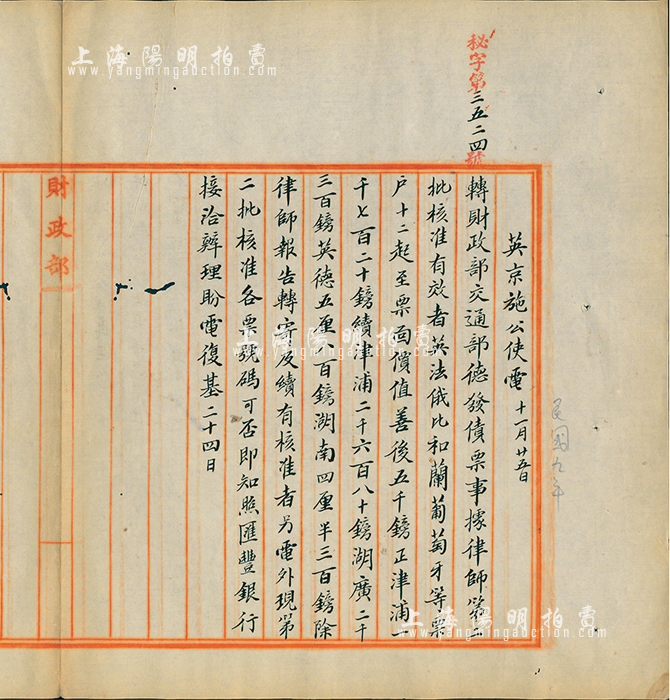 秘字第三五二四號
英京施公使電 十一月廿五日
民國九年
轉財政部交通部德發債票事據律師第二
批核准有效者英法俄比和蘭葡萄牙等票
户十二起至票面價值善後五千鎊正津浦一
千七百二十鎊續津浦二千六百八十鎊湖廣二千
三百鎊英德五厘八百鎊湖南四厘半三百鎊除
律師報告轉寄及續有核准者另電外現第
二批核准各票號碼可否即知照匯豐銀行
接洽辦理盼電復基二十四日
財政部
上海陽明拍賣
www.yangmingauction.com
上海陽明拍賣
www.yangmingauction.com
上海陽明拍賣
www.yangmingauction.com